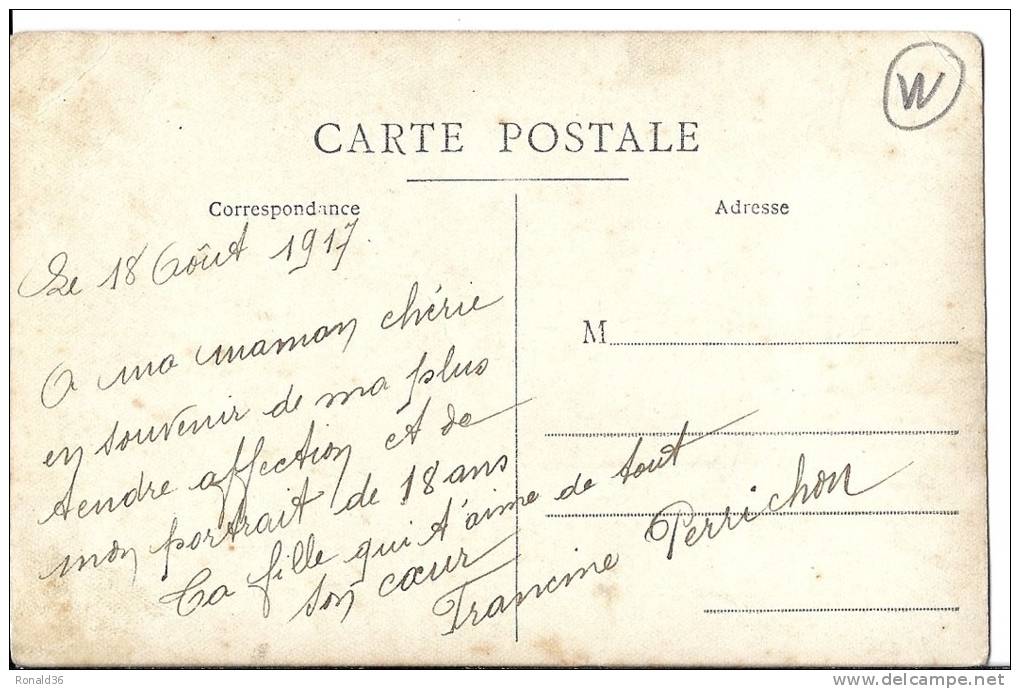 W
CARTE POSTALE
Correspondance
Adresse
Le 18 Août 1917
A ma maman chérie
en souvenir de ma plus
tendre affection et de
mon portrait de 18 ans
Ta fille qui t'aime de tout
son cœur
Francine Perrichon
M
Ronald36
www.delcampe.net